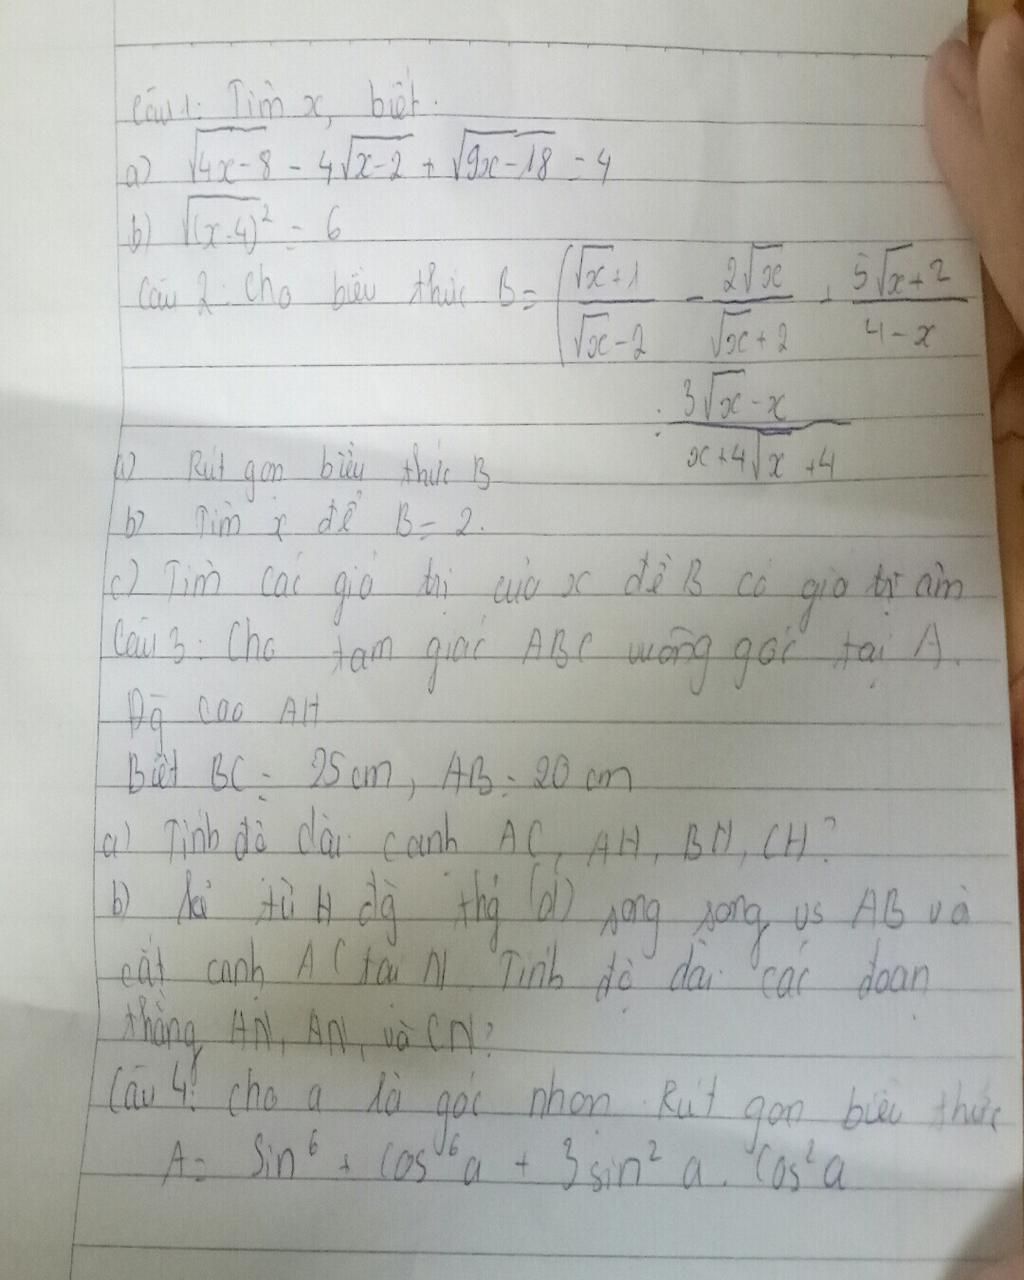 Câu 1: Tìm x, biết.
a) √(4x-8) - 4√(x-2) + √(9x-18) = 4
b) √((x-4)²) = 6
Câu 2: Cho biểu thức B = ( (√x+1)/(√x-2) - (2√x)/(√x+2) + (5√x+2)/(4-x)
: (3√x-x)/(x+4√x+4)
a) Rút gọn biểu thức B
b) Tìm x để B = 2.
c) Tìm các giá trị của x để B có giá trị âm
Câu 3: Cho tam giác ABC vuông góc tại A.
Đg cao AH
Biết BC = 25 cm, AB = 20 cm
a) Tính độ dài cạnh AC, AH, BH, CH?
b) Kẻ từ H đg thg (d) song song vs AB và
cắt cạnh AC tại N. Tính độ dài các đoạn
thẳng HN, AN, và CN?
Câu 4: cho a là góc nhọn Rút gọn biểu thức
A = Sin⁶ + Cos⁶a + 3sin²a. Cos²a